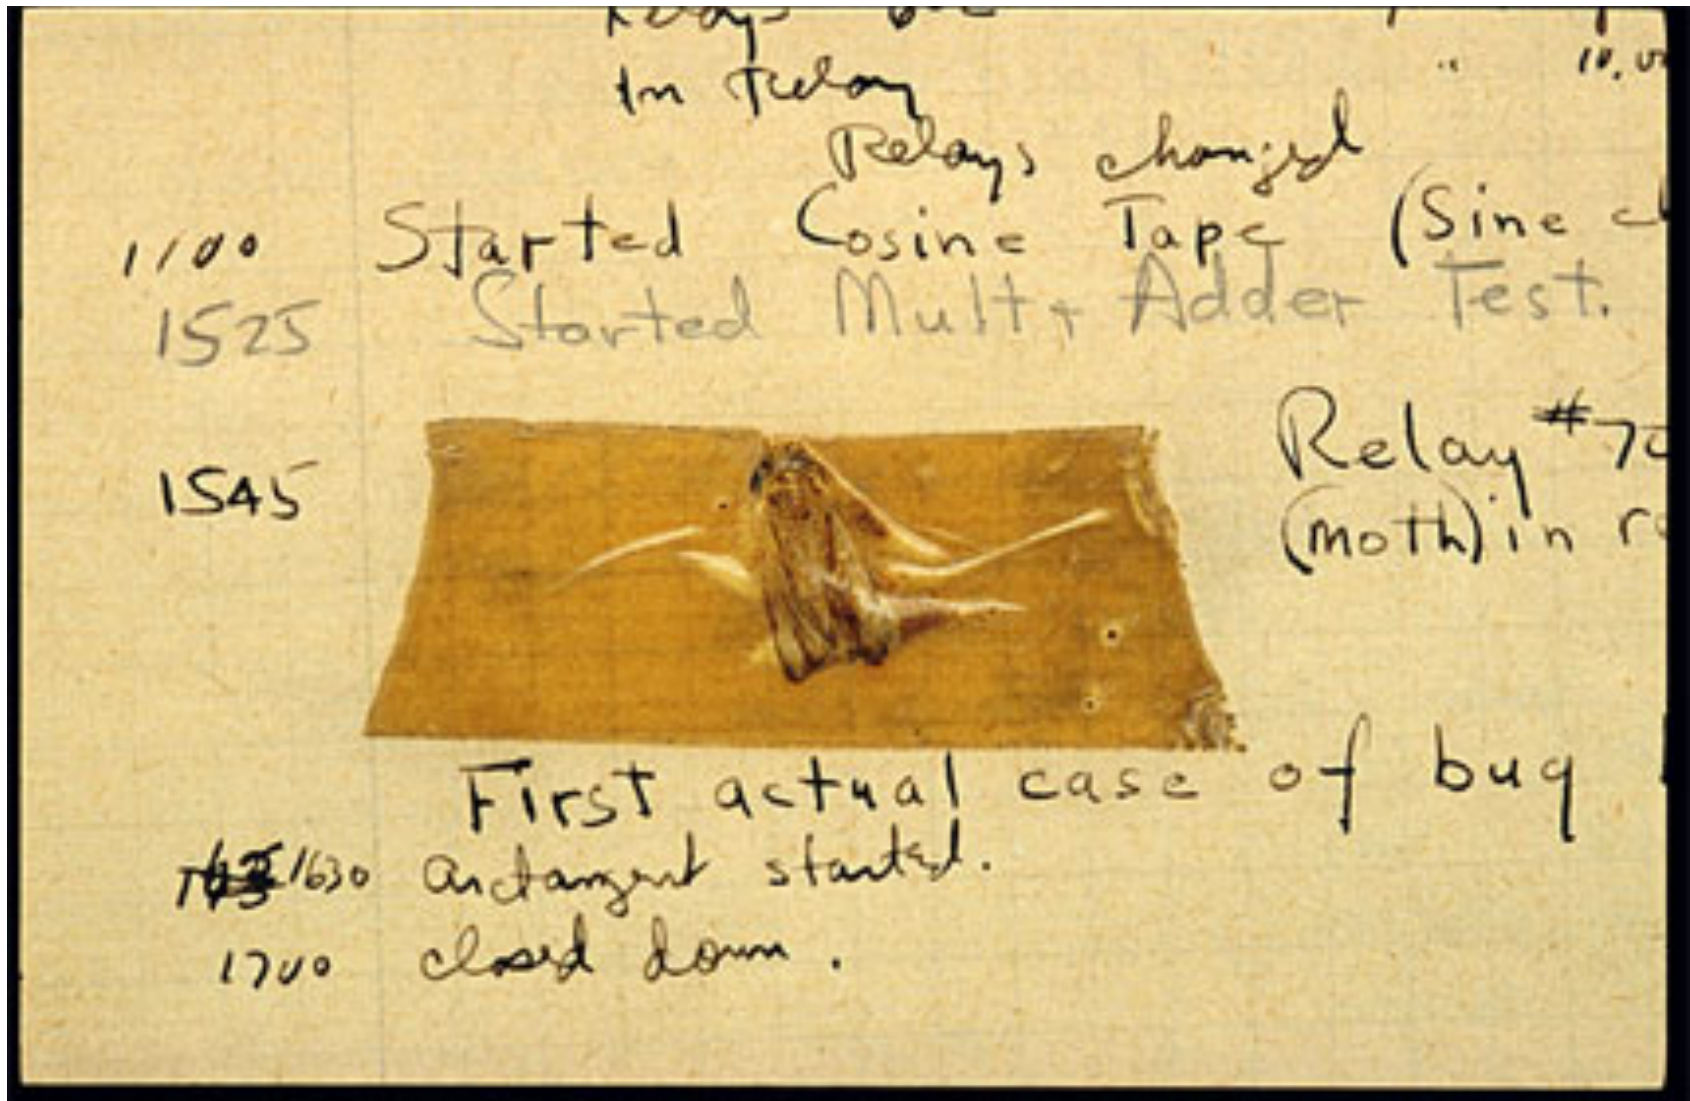 In Relay
10.00
Relays changed
1100 Started Cosine Tape (Sine
1525 Started Mult + Adder Test.
1545 Relay #70
(moth) in
First actual case of bug
1630 arctangent started.
1700 closed down.